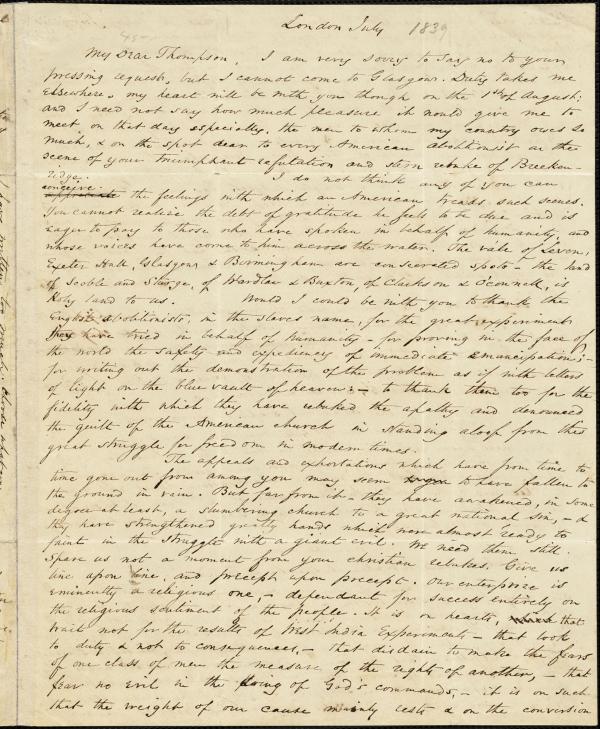 London July 1839
My Dear Thompson, I am very sorry to say no to your
pressing request, but I cannot come to Glasgow. Duty takes me
elsewhere. My heart will be with you though, on the 1st of August;
and I need not say how much pleasure it would give me to
meet on that day especially, the men to whom my country owes so
much, & on the spot dear to every American abolitionist as the
scene of your triumphant refutation and stern rebuke of Brecken-
ridge. I do not think any of you can
conceive the feelings with which an American treads such scenes.
You cannot realize the debt of gratitude he feels to be due and is
eager to pay to those who have spoken in behalf of humanity, and
whose voices have come to him across the water. The vale of Leven,
Exeter Hall, Glasgow & Birmingham are consecrated spots – the land
of Scoble and Sturge, of Wardlaw & Buxton, of Clarkson & O'Connell, is
Holy land to us. Would I could be with you to thank the
English abolitionists, in the slave's name, for the great experiment
they have tried in behalf of humanity – for proving in the face of
the world the safety and expediency of immediate emancipation; –
for writing out the demonstration of the problem as if with letters
of light on the blue vault of heaven; – to thank them too for the
fidelity with which they have rebuked the apathy and denounced
the guilt of the American church in standing aloof from this
great struggle for freedom in modern times.
The appeals and exhortations which have from time to
time gone out from among you may seem to have fallen to
the ground in vain. But far from it – they have awakened, in some
degree at least, a slumbering church to a great national sin, – &
they have strengthened greatly hands which were almost ready to
faint in the struggle with a giant evil. We need them still.
Spare us not a moment from your christian rebukes. Give us
line upon line, and precept upon precept. Our enterprize is
eminently a religious one, – dependant for success entirely on
the religious sentiment of the people. It is on hearts, that
wait not for the results of West India Experiments – that look
to duty & not to consequences, – that disdain to make the fears
of one class of men the measure of the rights of another, – that
fear no evil in the doing of God's commands, – it is on such
that the weight of our cause mainly rests & on the conversion